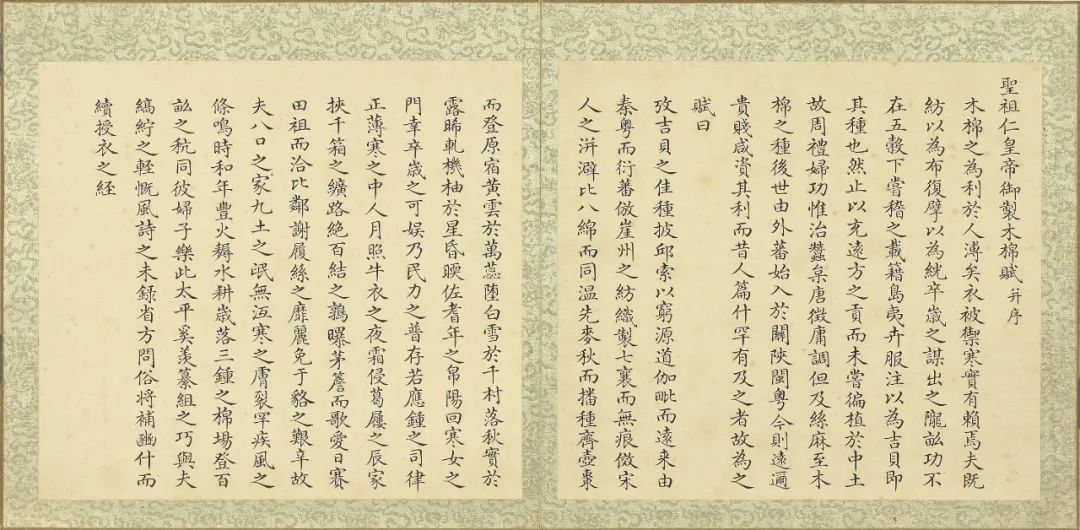 聖祖仁皇帝御製木棉賦并序
木棉之為利於人溥矣衣被禦寒實有賴焉夫既
紡以為布復擘以為絖卒歲之謀出之隴畝功不
在五穀下嘗稽之載籍島夷卉服注以為吉貝即
其種也然止以充遠方之貢而未嘗徧植於中土
故周禮婦功惟治蠶枲唐徵庸調但及絲麻至木
棉之種後世由外蕃始入於關陝閩粵今則遠邇
貴賤咸資其利而昔人篇什罕有及之者故為之
賦曰
攷吉貝之佳種披邱索以窮源道伽毗而遠来由
秦粵而衍蕃倣崖州之紡織製七襄而無痕倣宋
人之洴澼比八綿而同温先麥秋而播種齊壺棗
而登原宿黃雲於萬蕊墮白雪於千村落秋實於
露晞軋機杼於星昏暝佐耆年之帛陽回寒女之
門幸卒歲之可娱乃民力之普存若應鍾之司律
正薄寒之中人月照牛衣之夜霜侵葛屨之辰家
挾千箱之纊路絶百結之鶉曝茅簷而歌愛日賽
田祖而洽比鄰謝履絲之靡麗免于貉之艱辛故
夫八口之家九土之氓無沍寒之膚裂罕疾風之
條鳴時和年豐火耨水耕歲落三鍾之棉場登百
畝之秔同彼婦子樂此太平奚羨纂組之巧與夫
縞紵之輕慨風詩之未録省方問俗将補豳什而
續授衣之経